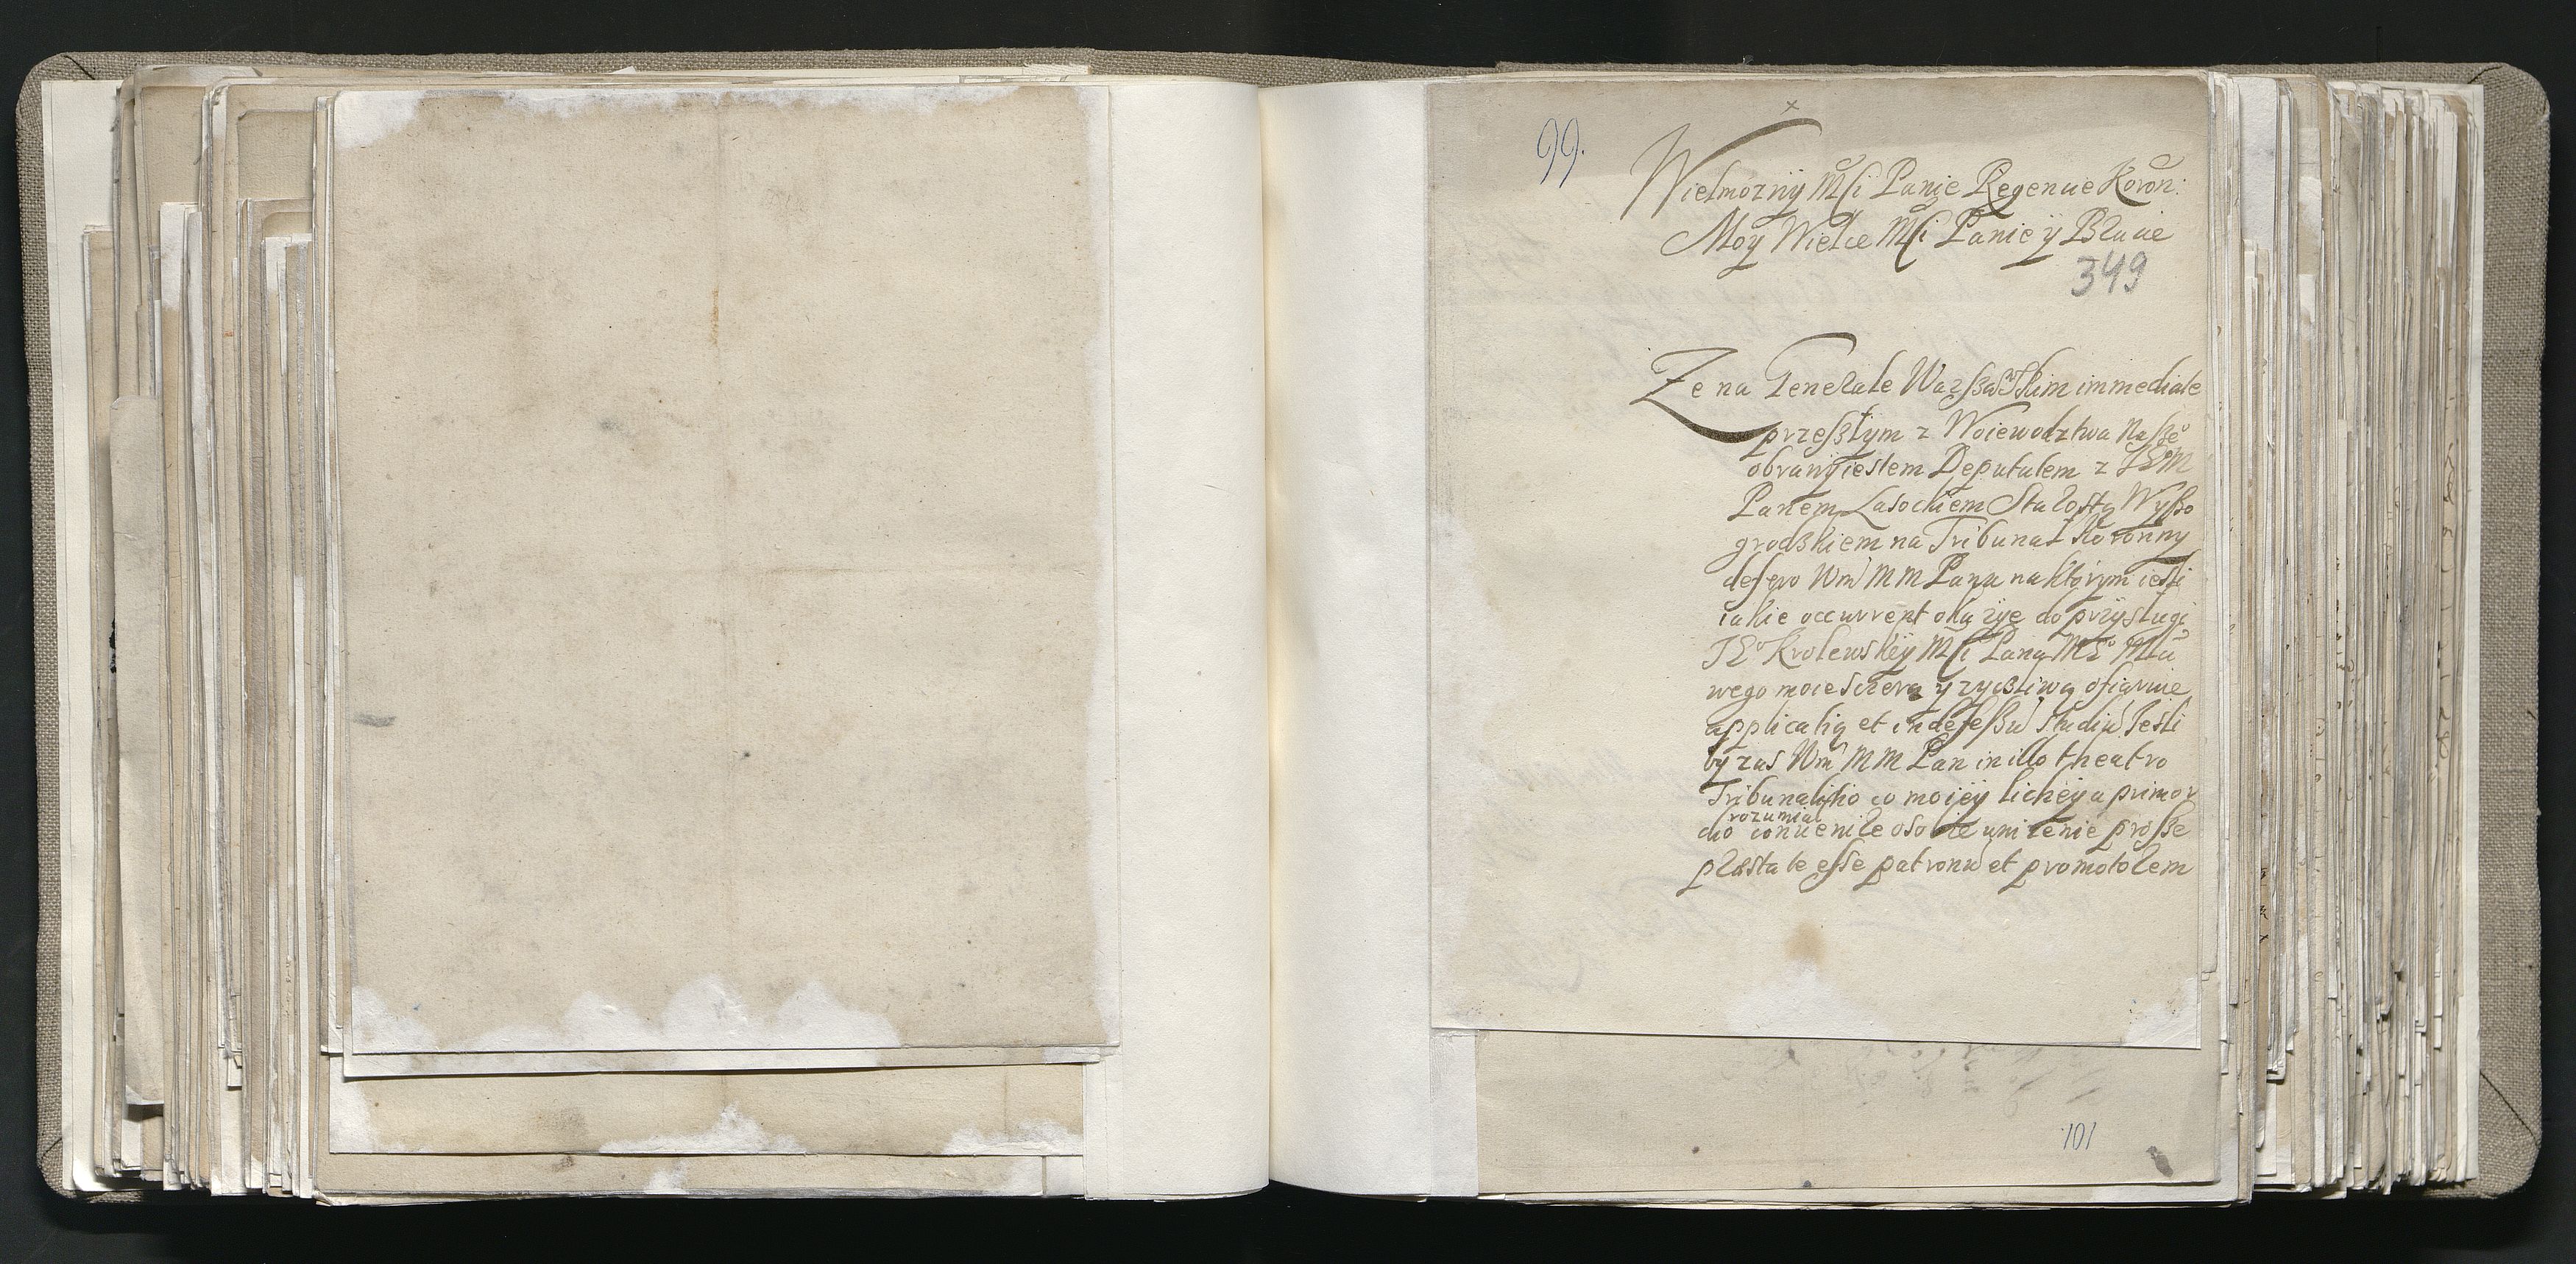 99.
Wielmozny Mſci Panie Regencie Koron:
Moy Wielce Mſci Panie y Bracie
349
Ze na Generale Warſzawſkim immediate
przeſzłym z Woiewodztwa Naſzeº
obrany iestem Deputatem z JEM
Panem Lasockiem Starostą Wyſzo
grodzkiem na Tribunał Koronny
defero Wm̃ MM Panu na ktorym ieſli
iakie occurrent okazye do przysługi
JEº Krolewskiey Mſci Pana MEº Mĩ
wego moie sczerą y zyczliwą ofiaruie
applicatią et indefeſsũ studiũ Iesli
by zas Wm̃ MM Pan in illo theatro
Tribunalitio co moiey lichey a primor
rozumiał
dio conuenire osobie unizenie proſze
præstare eſse patronũ et promotorem
101